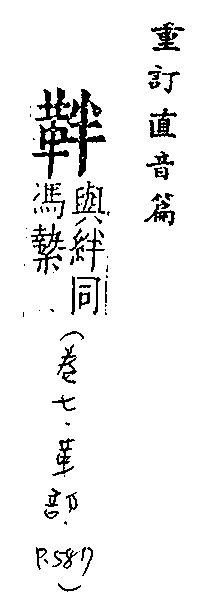 重訂直音篇
靽
與絆同
馮縶
(卷七.革部.
P.587)